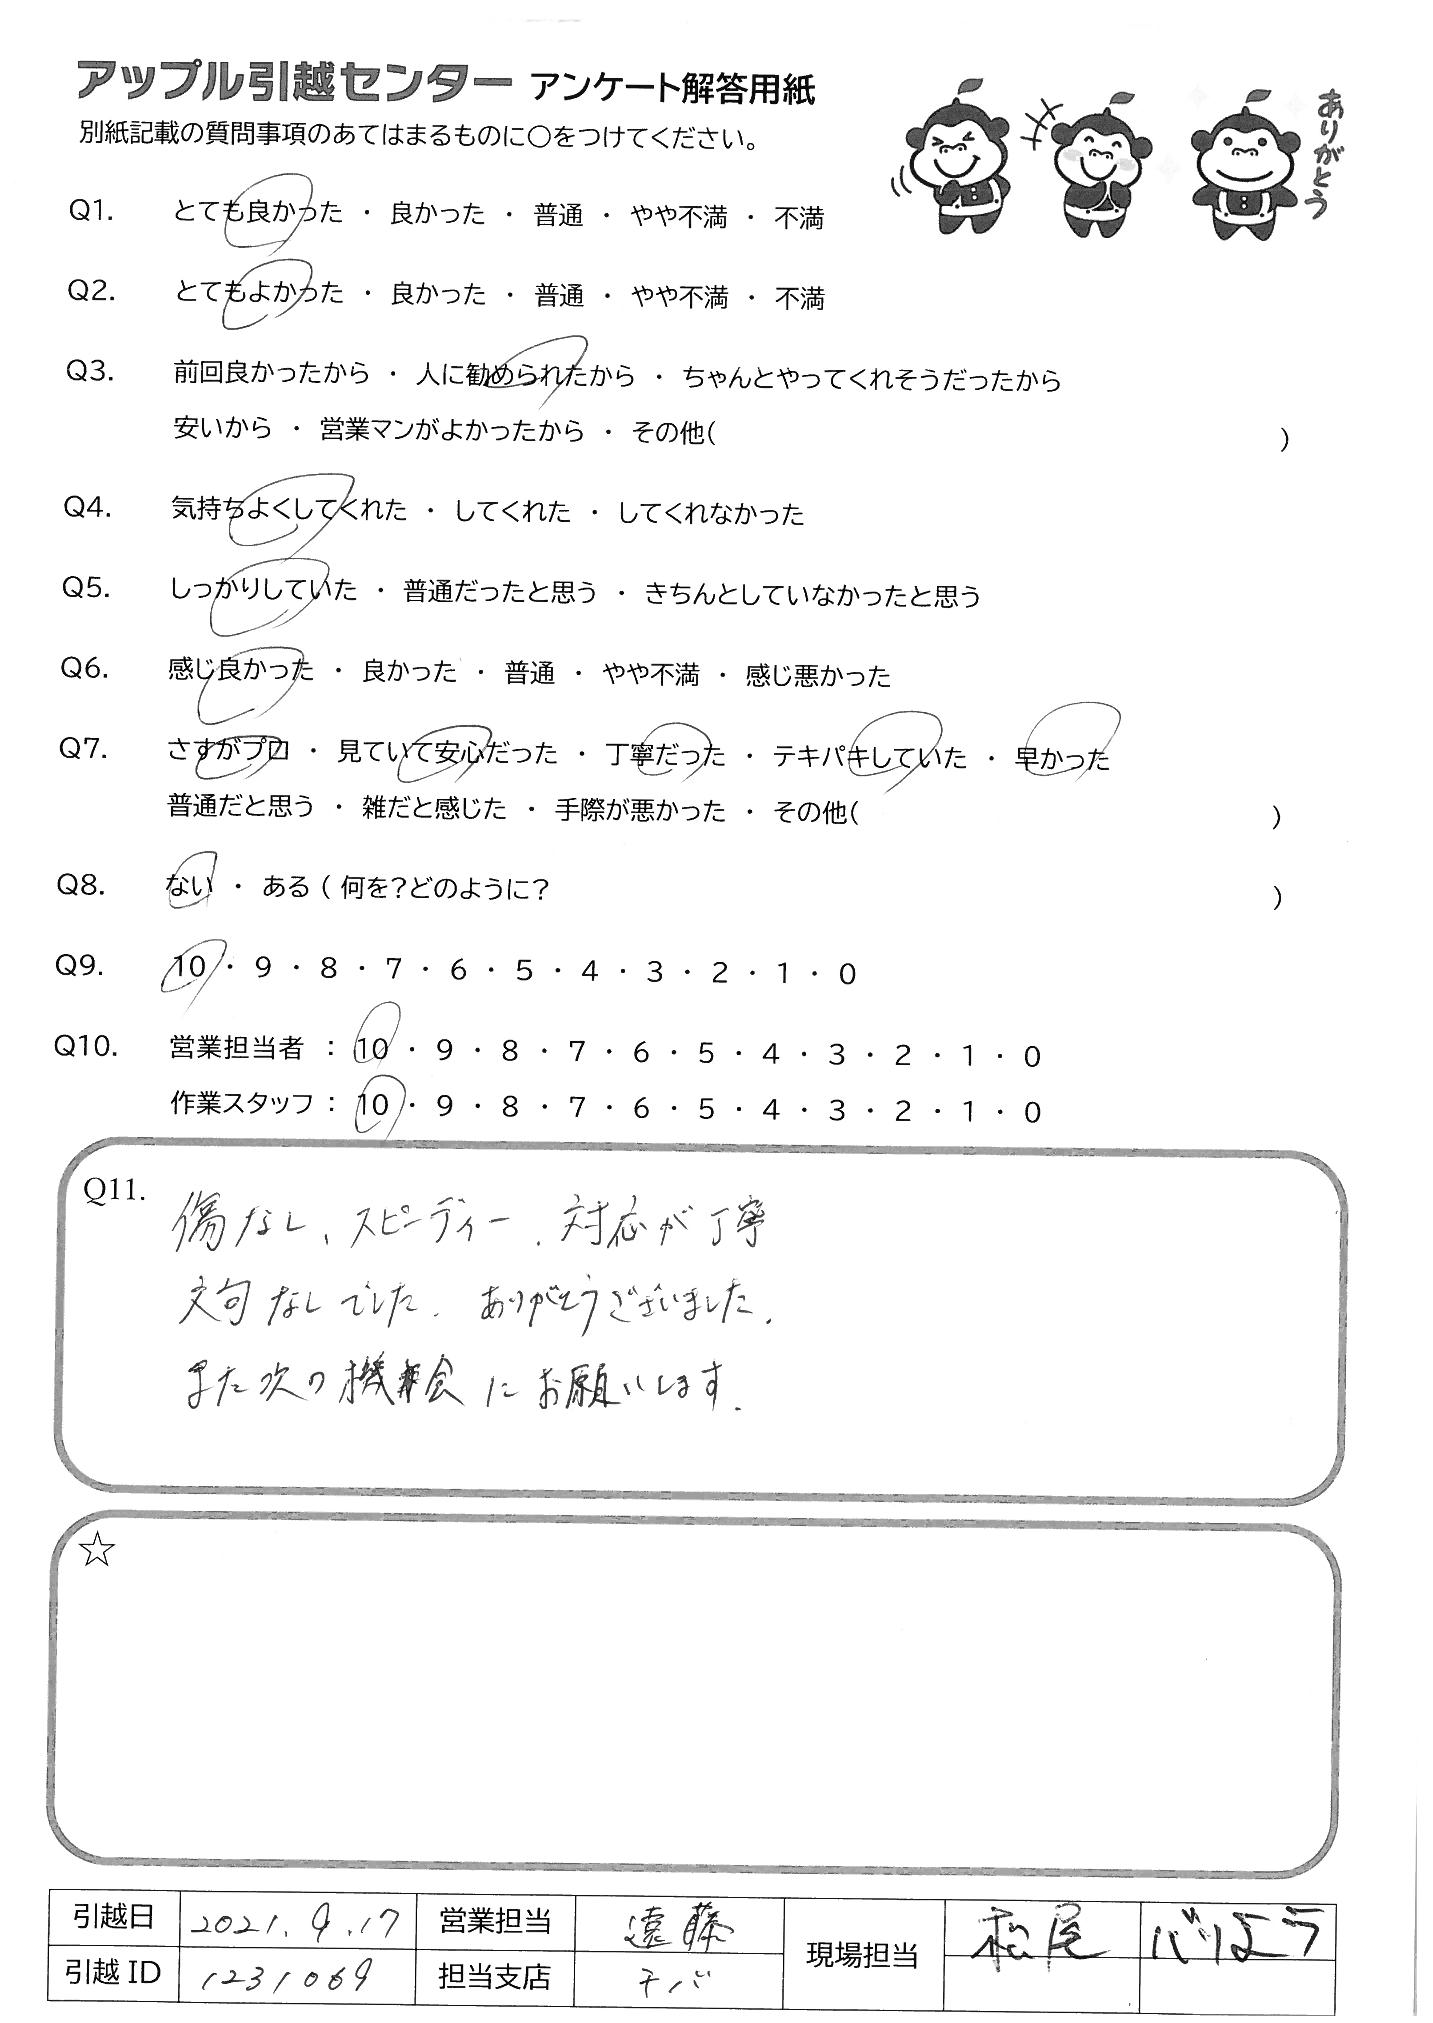 アップル引越センター アンケート解答用紙
別紙記載の質問事項のあてはまるものに○をつけてください。
ありがとう
Q1. とても良かった ・ 良かった ・ 普通 ・ やや不満 ・ 不満
Q2. とてもよかった ・ 良かった ・ 普通 ・ やや不満 ・ 不満
Q3. 前回良かったから ・ 人に勧められたから ・ ちゃんとやってくれそうだったから
安いから ・ 営業マンがよかったから ・ その他( )
Q4. 気持ちよくしてくれた ・ してくれた ・ してくれなかった
Q5. しっかりしていた ・ 普通だったと思う ・ きちんとしていなかったと思う
Q6. 感じ良かった ・ 良かった ・ 普通 ・ やや不満 ・ 感じ悪かった
Q7. さすがプロ ・ 見ていて安心だった ・ 丁寧だった ・ テキパキしていた ・ 早かった
普通だと思う ・ 雑だと感じた ・ 手際が悪かった ・ その他( )
Q8. ない ・ ある ( 何を?どのように? )
Q9. 10 ・ 9 ・ 8 ・ 7 ・ 6 ・ 5 ・ 4 ・ 3 ・ 2 ・ 1 ・ 0
Q10. 営業担当者 : 10 ・ 9 ・ 8 ・ 7 ・ 6 ・ 5 ・ 4 ・ 3 ・ 2 ・ 1 ・ 0
作業スタッフ : 10 ・ 9 ・ 8 ・ 7 ・ 6 ・ 5 ・ 4 ・ 3 ・ 2 ・ 1 ・ 0
Q11.
傷なし、スピーディー、対応が丁寧
文句なしでした。ありがとうございました。
また次の機会にお願いします。
☆
引越日 2021.9.17 営業担当 遠藤 現場担当 松尾
引越ID 1231069 担当支店 チバ